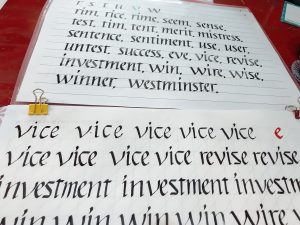 r s t u v w
rim, rice, rime, seem, sense,
test, tim, tent, merit, mistress,
sentence, sentiment, use, user,
untest, success, eve, vice, revise,
investment, win, wire, wise,
winner, westminster.
vice vice vice vice vice e
vice vice vice vice revise revise
investment investment investm
win win win win win wire w